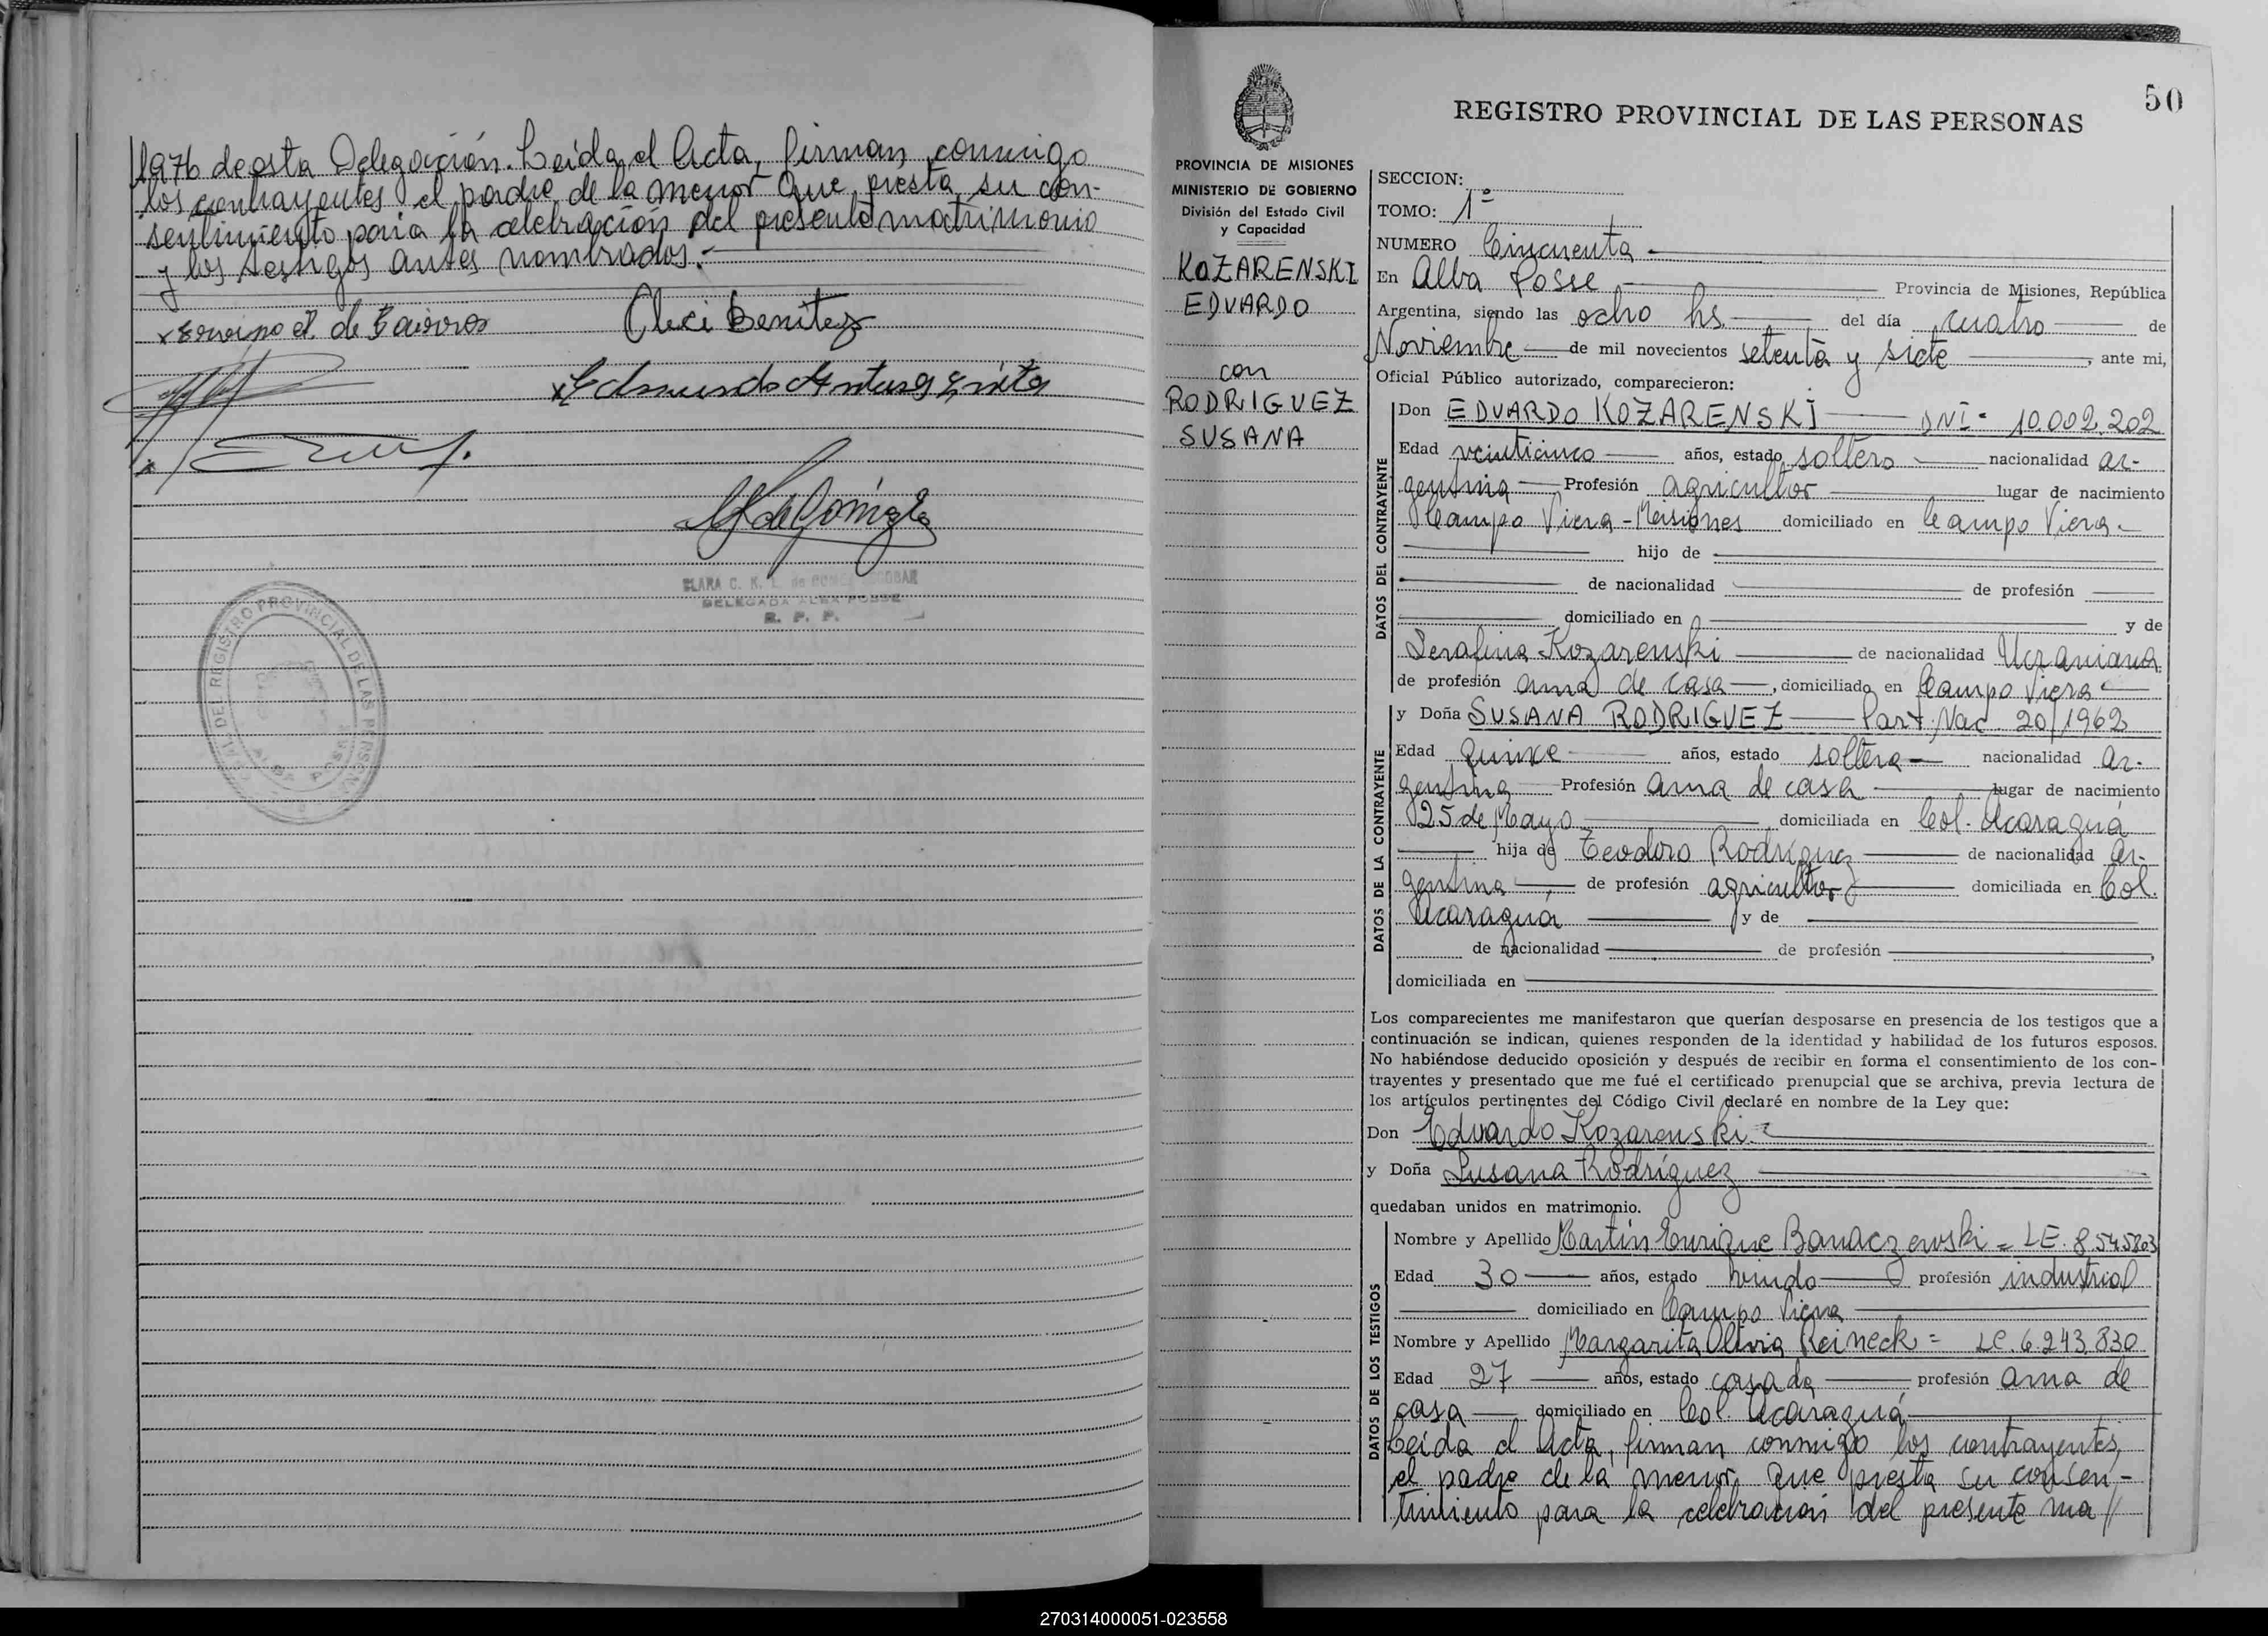 1976 de esta Delegación. Leida el Acta, firman conmigo
los contrayentes el padre de la menor que presta su con-
sentimiento para la celebración del presente matrimonio
y los testigos antes nombrados.-
Cleci Benitez
DELEGADA ALBA POSSE
R. P. P.
DEL REGISTRO PROVINCIAL DE LAS PERSONAS
ALBA POSSE
50
REGISTRO PROVINCIAL DE LAS PERSONAS
PROVINCIA DE MISIONES
MINISTERIO DE GOBIERNO
División del Estado Civil
y Capacidad
KOZARENSKI
EDUARDO
con
RODRIGUEZ
SUSANA
SECCION:
TOMO: 1º
NUMERO Cincuenta
En Alba Posse Provincia de Misiones, República
Argentina, siendo las ocho hs. del día cuatro de
Noviembre de mil novecientos setenta y siete, ante mi,
Oficial Público autorizado, comparecieron:
DATOS DEL CONTRAYENTE
Don EDUARDO KOZARENSKI DNI- 10.002.202
Edad veinticinco años, estado soltero nacionalidad ar-
gentina Profesión agricultor lugar de nacimiento
Campo Viera - Misiones domiciliado en Campo Viera.-
hijo de
de nacionalidad de profesión
domiciliado en y de
Serafina Kozarenski de nacionalidad Ucraniana
de profesión ama de casa, domiciliado en Campo Viera
DATOS DE LA CONTRAYENTE
y Doña SUSANA RODRIGUEZ Part. Nac. 20/1962
Edad quince años, estado soltera nacionalidad ar-
gentina Profesión ama de casa lugar de nacimiento
25 de Mayo domiciliada en Col. Acaraguá
hija de Teodoro Rodríguez de nacionalidad ar-
gentina, de profesión agricultor domiciliada en Col.
Acaraguá y de
de nacionalidad de profesión,
domiciliada en
Los comparecientes me manifestaron que querían desposarse en presencia de los testigos que a
continuación se indican, quienes responden de la identidad y habilidad de los futuros esposos.
No habiéndose deducido oposición y después de recibir en forma el consentimiento de los con-
trayentes y presentado que me fué el certificado prenupcial que se archiva, previa lectura de
los artículos pertinentes del Código Civil declaré en nombre de la Ley que:
Don Eduardo Kozarenski
y Doña Susana Rodríguez
quedaban unidos en matrimonio.
DATOS DE LOS TESTIGOS
Nombre y Apellido Martín Enrique Banaczewski = LE. 8.545.803
Edad 30 años, estado viudo profesión industrial
domiciliado en Campo Viera
Nombre y Apellido Margarita Olivia Reineck = LC. 6.243.830
Edad 27 años, estado casada profesión ama de
casa domiciliado en Col. Acaraguá
Leida el Acta, firman conmigo los contrayentes,
el padre de la menor que presta su consen-
timiento para la celebración del presente ma//
270314000051-023558